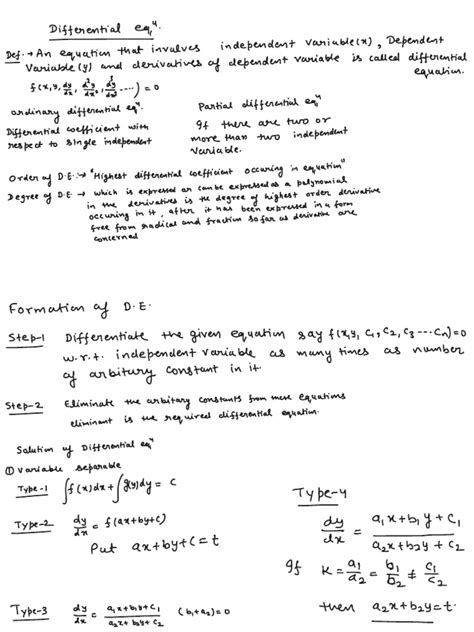 Differential eqⁿ.
Def. → An equation that involves independent variable(x), Dependent
Variable(y) and derivatives of dependent variable is called differential
equation.
f(x, y, dy/dx, d²y/dx², d³y/dx³ ----) = 0
ordinary differential eqⁿ.
Differential coefficient with
respect to single independent
Partial differential eqⁿ
If there are two or
more than two independent
variable.
Order of D.E. → "Highest differential coefficient occuring in equation"
Degree of D.E → which is expressed or can be expressed as a polynomial
in the derivatives is the degree of highest order derivative
occuring in it, after it has been expressed in a form
free from radical and fraction so far as derivative are
concerned
Formation of D.E.
Step-1 Differentiate the given equation say f(x, y, C₁, C₂, C₃ --- Cn) = 0
w.r.t. independent variable as many times as number
of arbitary constant in it.
Step-2 Eliminate the arbitary constants from these equations
eliminant is the required differential equation.
Solution of Differential eqⁿ
① Variable separable
Type-1 ∫f(x)dx + ∫g(y)dy = C
Type-2 dy/dx = f(ax+by+c)
Put ax+by+c = t
Type-3 dy/dx = a₁x+b₁y+c₁ / a₂x+b₂y+c₂ (b₁+a₂) = 0
Type-4
dy/dx = a₁x+b₁y+c₁ / a₂x+b₂y+c₂
If K = a₁/a₂ = b₁/b₂ ≠ c₁/c₂
then a₂x+b₂y = t.